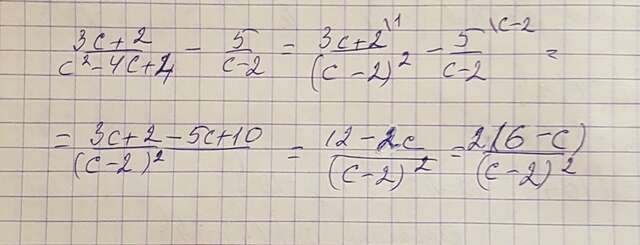 (3c+2)/(c²-4c+4) - 5/(c-2) = (3c+2\1)/(c-2)² - (5\c-2)/(c-2) =
= (3c+2-5c+10)/(c-2)² = (12-2c)/(c-2)² = 2(6-c)/(c-2)²